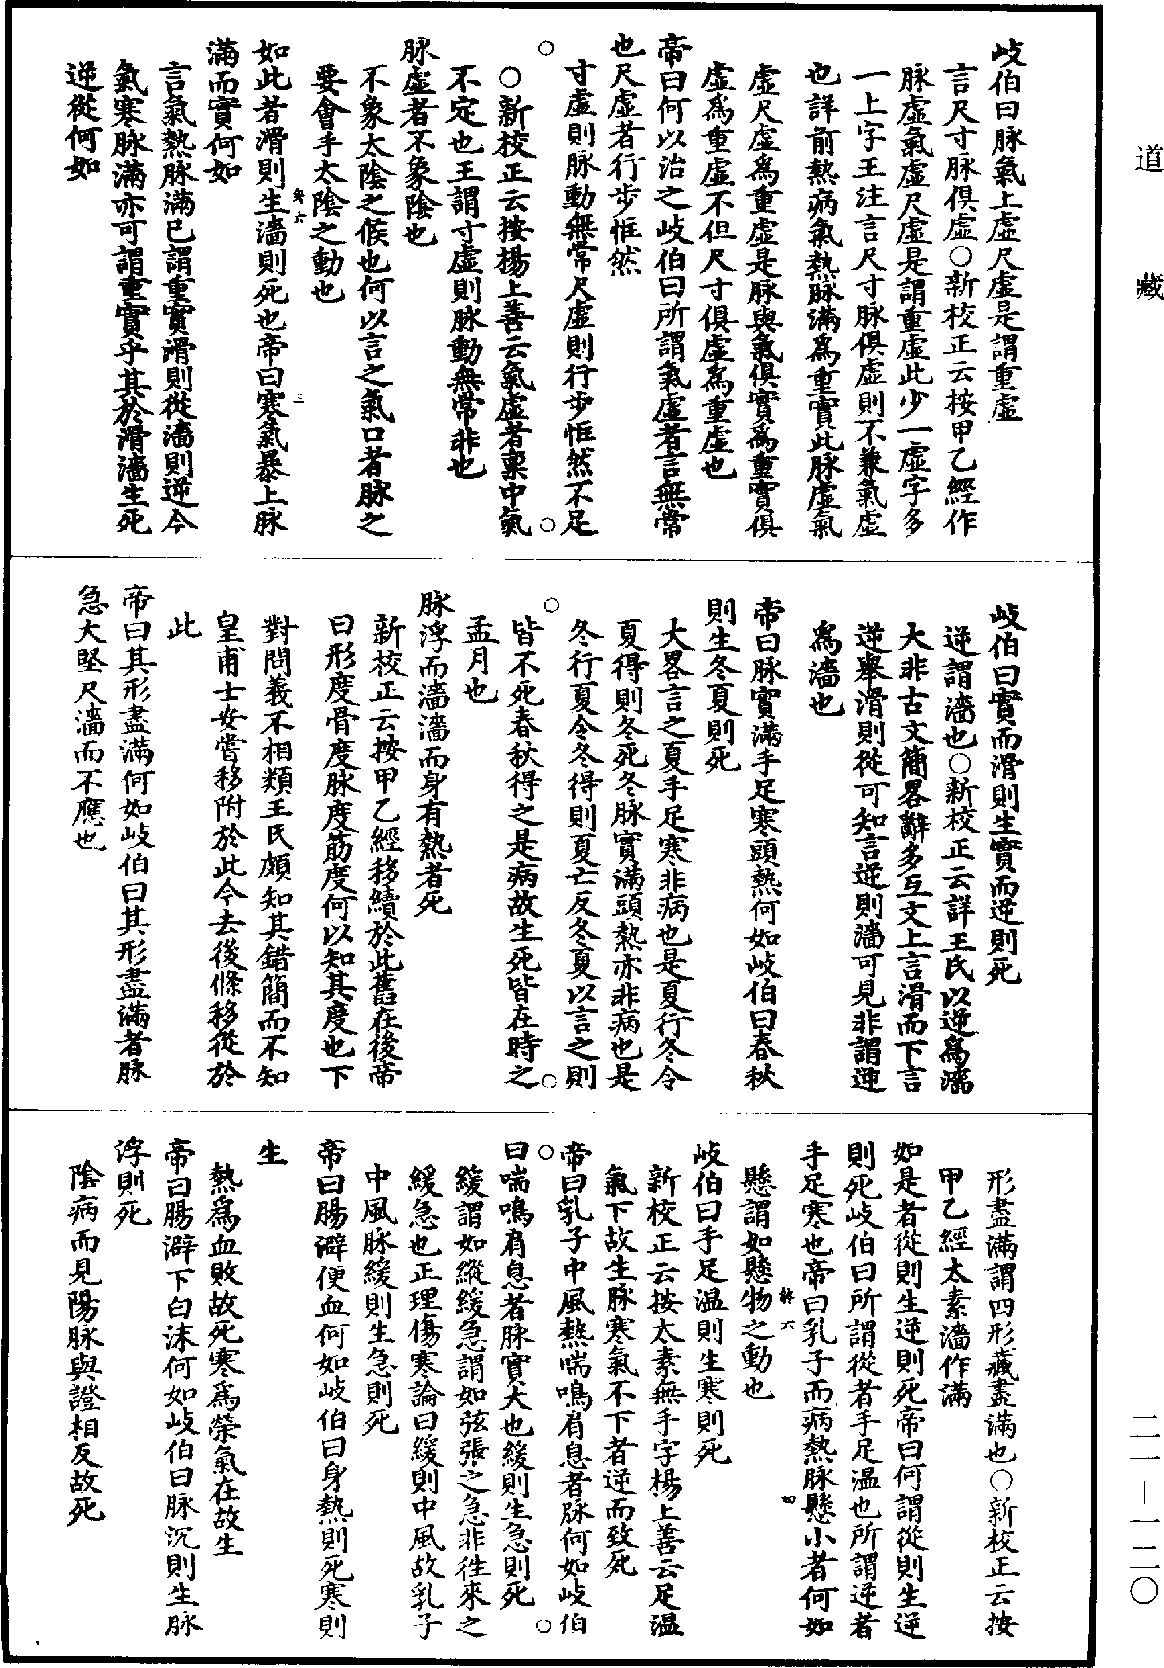 道藏
岐伯曰脉氣上虛尺虛是謂重虛
言尺寸脉俱虛○新校正云按甲乙經作
脉虛氣虛尺虛是謂重虛此少一虛字多
一上字王注言尺寸脉俱虛則不兼氣虛
也詳前熱病氣熱脉滿爲重實此脉虛氣
虛尺虛爲重虛是脉與氣俱實爲重實俱
虛爲重虛不但尺寸俱虛爲重虛也
帝曰何以治之岐伯曰所謂氣虛者言無常
也尺虛者行步恇然
寸虛則脉動無常尺虛則行步恇然不足
○新校正云按楊上善云氣虛者稟中氣
不定也王謂寸虛則脉動無常非也
脉虛者不象陰也
不象太陰之候也何以言之氣口者脉之
要會手太陰之動也
如此者滑則生濇則死也帝曰寒氣暴上脉
滿而實何如
言氣熱脉滿已謂重實滑則從濇則逆今
氣寒脉滿亦可謂重實乎其於滑濇生死
逆從何如
岐伯曰實而滑則生實而逆則死
逆謂濇也○新校正云詳王氏以逆爲濇
大非古文簡畧辭多互文上言滑而下言
逆舉滑則從可知言逆則濇可見非謂逆
爲濇也
帝曰脉實滿手足寒頭熱何如岐伯曰春秋
則生冬夏則死
大畧言之夏手足寒非病也是夏行冬令
夏得則冬死冬脉實滿頭熱亦非病也是
冬行夏令冬得則夏亡反冬夏以言之則
皆不死春秋得之是病故生死皆在時之
孟月也
脉浮而濇濇而身有熱者死
新校正云按甲乙經移續於此舊在後帝
曰形度骨度脉度筋度何以知其度也下
對問義不相類王氏頗知其錯簡而不知
皇甫士安嘗移附於此今去後條移從於
此
帝曰其形盡滿何如岐伯曰其形盡滿者脉
急大堅尺濇而不應也
形盡滿謂四形藏盡滿也○新校正云按
甲乙經太素濇作滿
如是者從則生逆則死帝曰何謂從則生逆
則死岐伯曰所謂從者手足温也所謂逆者
手足寒也帝曰乳子而病熱脉懸小者何如
懸謂如懸物之動也
岐伯曰手足温則生寒則死
新校正云按太素無手字楊上善云足温
氣下故生脉寒氣不下者逆而致死
帝曰乳子中風熱喘鳴肩息者脉何如岐伯
曰喘鳴肩息者脉實大也緩則生急則死
緩謂如縱緩急謂如弦張之急非徃來之
緩急也正理傷寒論曰緩則中風故乳子
中風脉緩則生急則死
帝曰腸澼便血何如岐伯曰身熱則死寒則
生
熱爲血敗故死寒爲榮氣在故生
帝曰腸澼下白沫何如岐伯曰脉沉則生脉
浮則死
陰病而見陽脉與證相反故死
二一—一二○